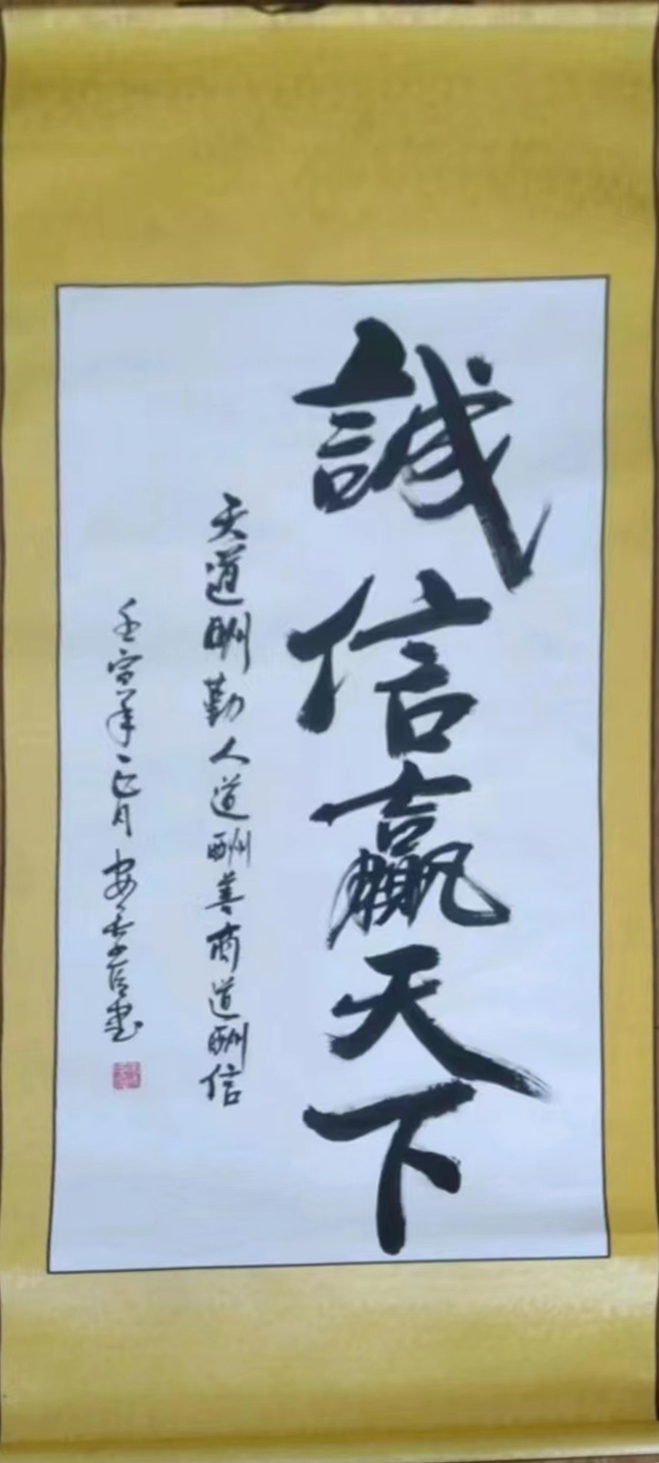 誠信赢天下
天道酬勤人道酬善商道酬信
壬寅年正月安 书